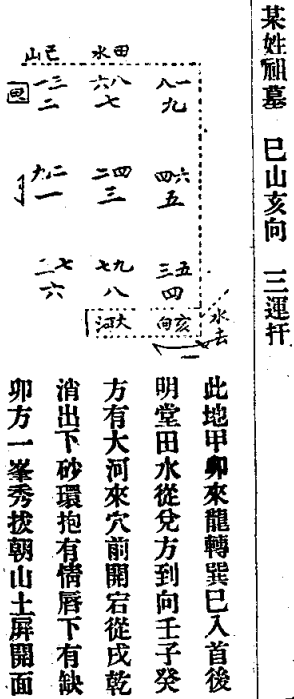 某姓祖墓　巳山亥向　三運扞
巳山
田水
一三　六八　八一
二　七　九
九二　二四　四六
一　三　五
七九　三五
六　八　四
大河
亥向
水去
此地甲卯來龍轉巽巳入首後
明堂田水從兌方到向壬子癸
方有大河來穴前開宕從戌乾
消出下砂環抱有情唇下有缺
卯方一峯秀拔朝山土屏開面